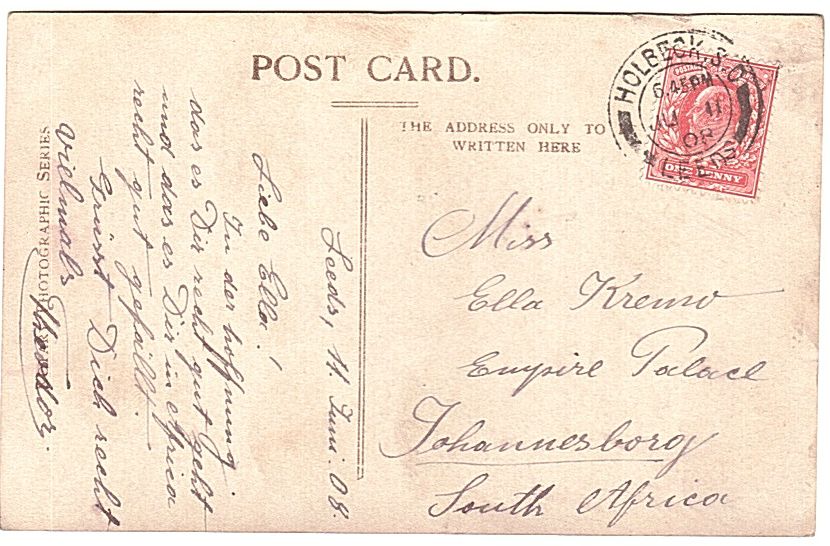 POST CARD.
THE ADDRESS ONLY TO
WRITTEN HERE
HOLBECK. S.O.
6.45 PM
JU 11
08
LEEDS
POSTAGE
ONE PENNY
Miss
Ella Kremo
Empire Palace
Johannesborg
South Africa
Leeds, 11. Juni. 08.
Liebe Ella!
In der hoffnung
das es Dir recht gut geht
und das es Dir in Africa
recht gut gefällt.
Grüsst Dich recht
vielmals
Theodor.
PHOTOGRAPHIC SERIES